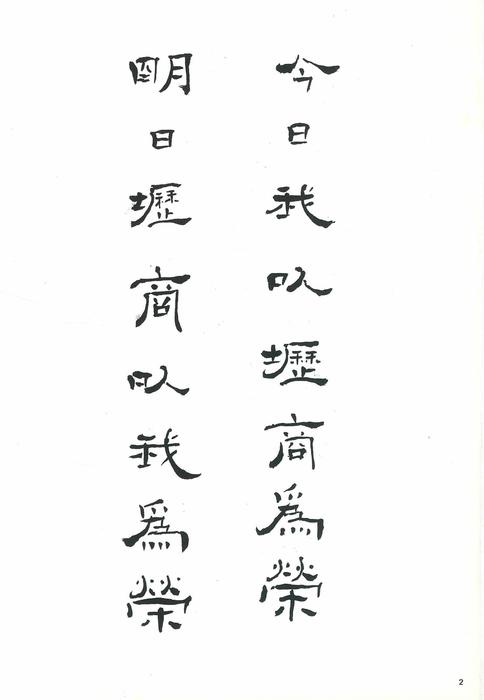 今日我以壢商為榮
明日壢商以我為榮
2